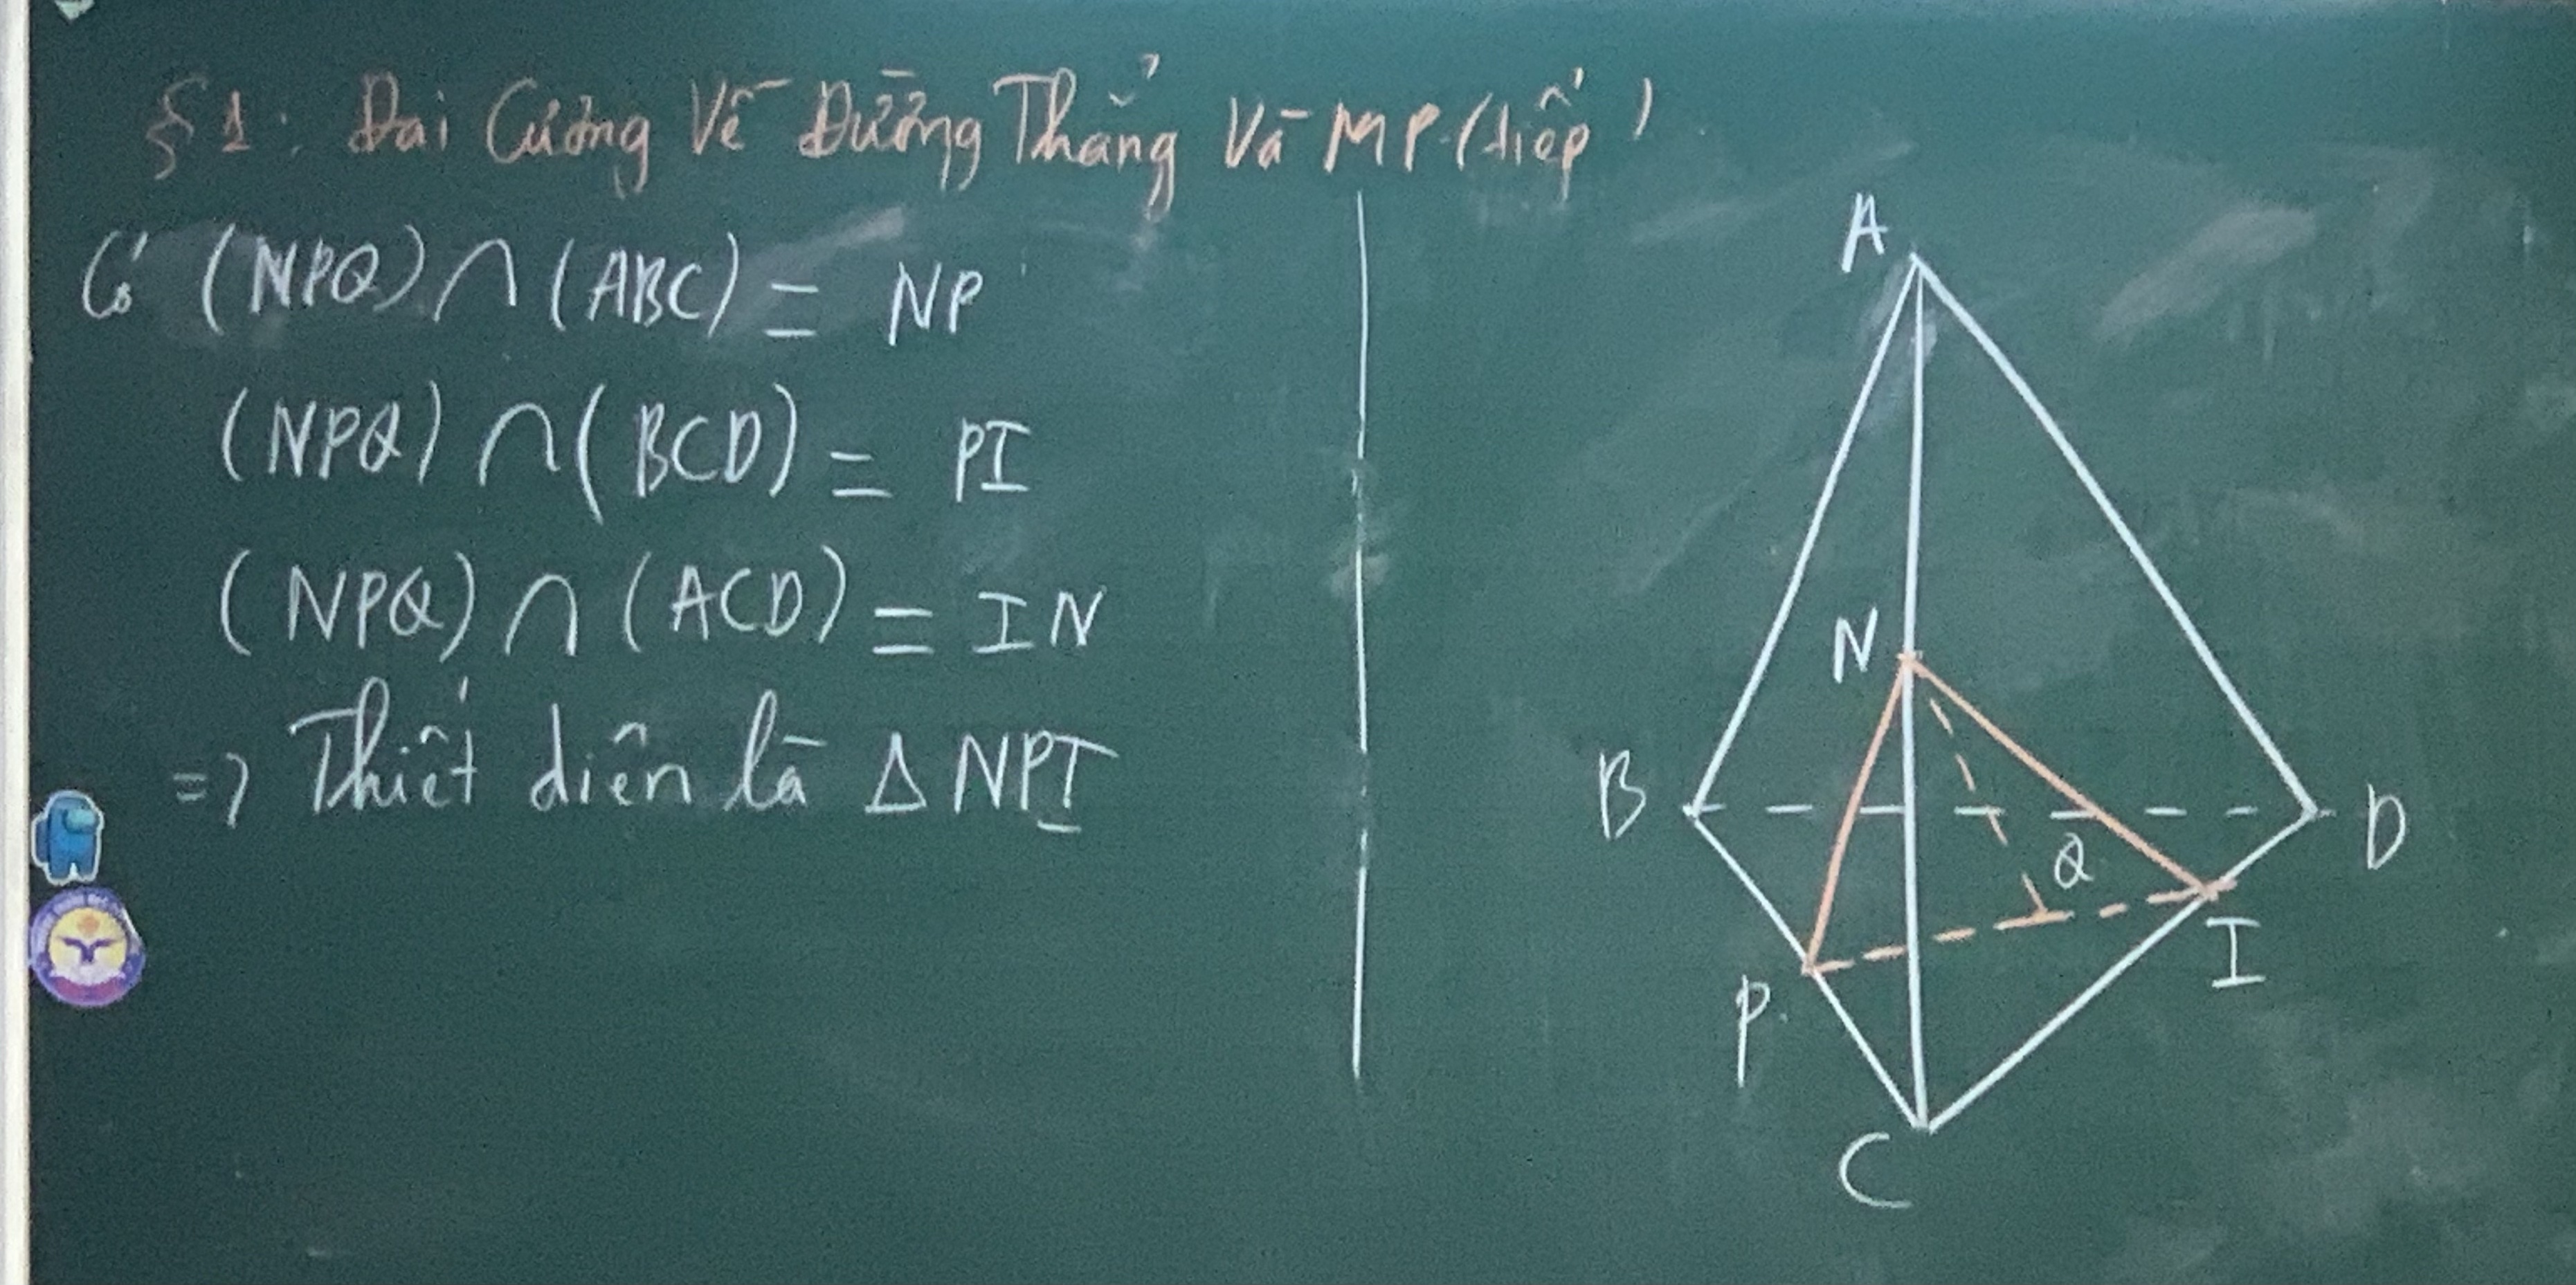 §1: Đại Cương Về Đường Thẳng Và MP (tiếp)
Có (NPQ) ∩ (ABC) = NP
(NPQ) ∩ (BCD) = PI
(NPQ) ∩ (ACD) = IN
=> Thiết diện là Δ NPI
A
N
B
D
Q
I
P
C